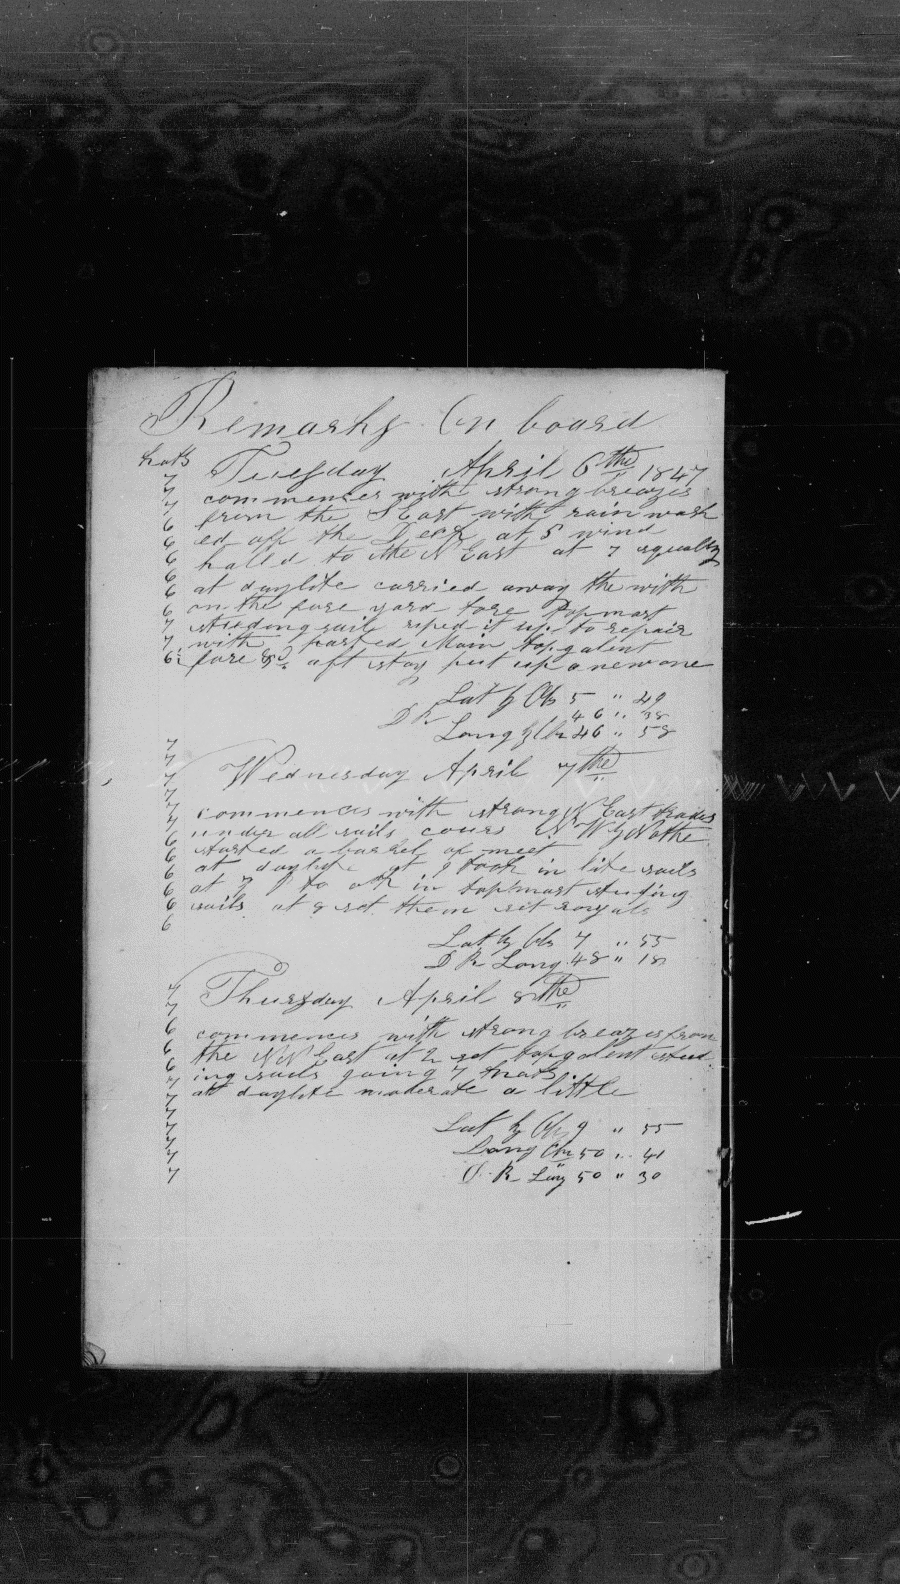 Remarks On board
knots Tuesday April 6the 1847
7 commences with strong breazes
7 from the S East with rain wash
6 ed off the Deck at 5 wind
6 halled to the N East at 7 squally
6
6 at daylite carried away the with
6 on the fore yard fore topmast
7 studingsail riped it up to repair
7 with parted Main topgalent
6 fore &c aft stay put up a new one
Lat by Obs 5 " 49
D R 46 " 38
Long by Chr 46 " 58
7
7
7 Wednesday April 7the
7
7 commences with strong N East trades
6 under all sails cours N W by Nothe
6 started a barrel of meet
6 at daylite at 9 took in lite sails
6 at 7 P to ock in topmast studing
6 sails at 8 set them set royals
6
Lat by Obs 7 " 55
D R Long 48 " 18
7 Thursday April 8the
7
6 commences with strong breazes from
6 the N N East at 2 set topgalent stud
7 ing sails going 7 knots
7 at daylite moderate a little
7
7 Lat by Obs 9 " 55
7 Long Chr 50 " 41
7 D R Long 50 " 30